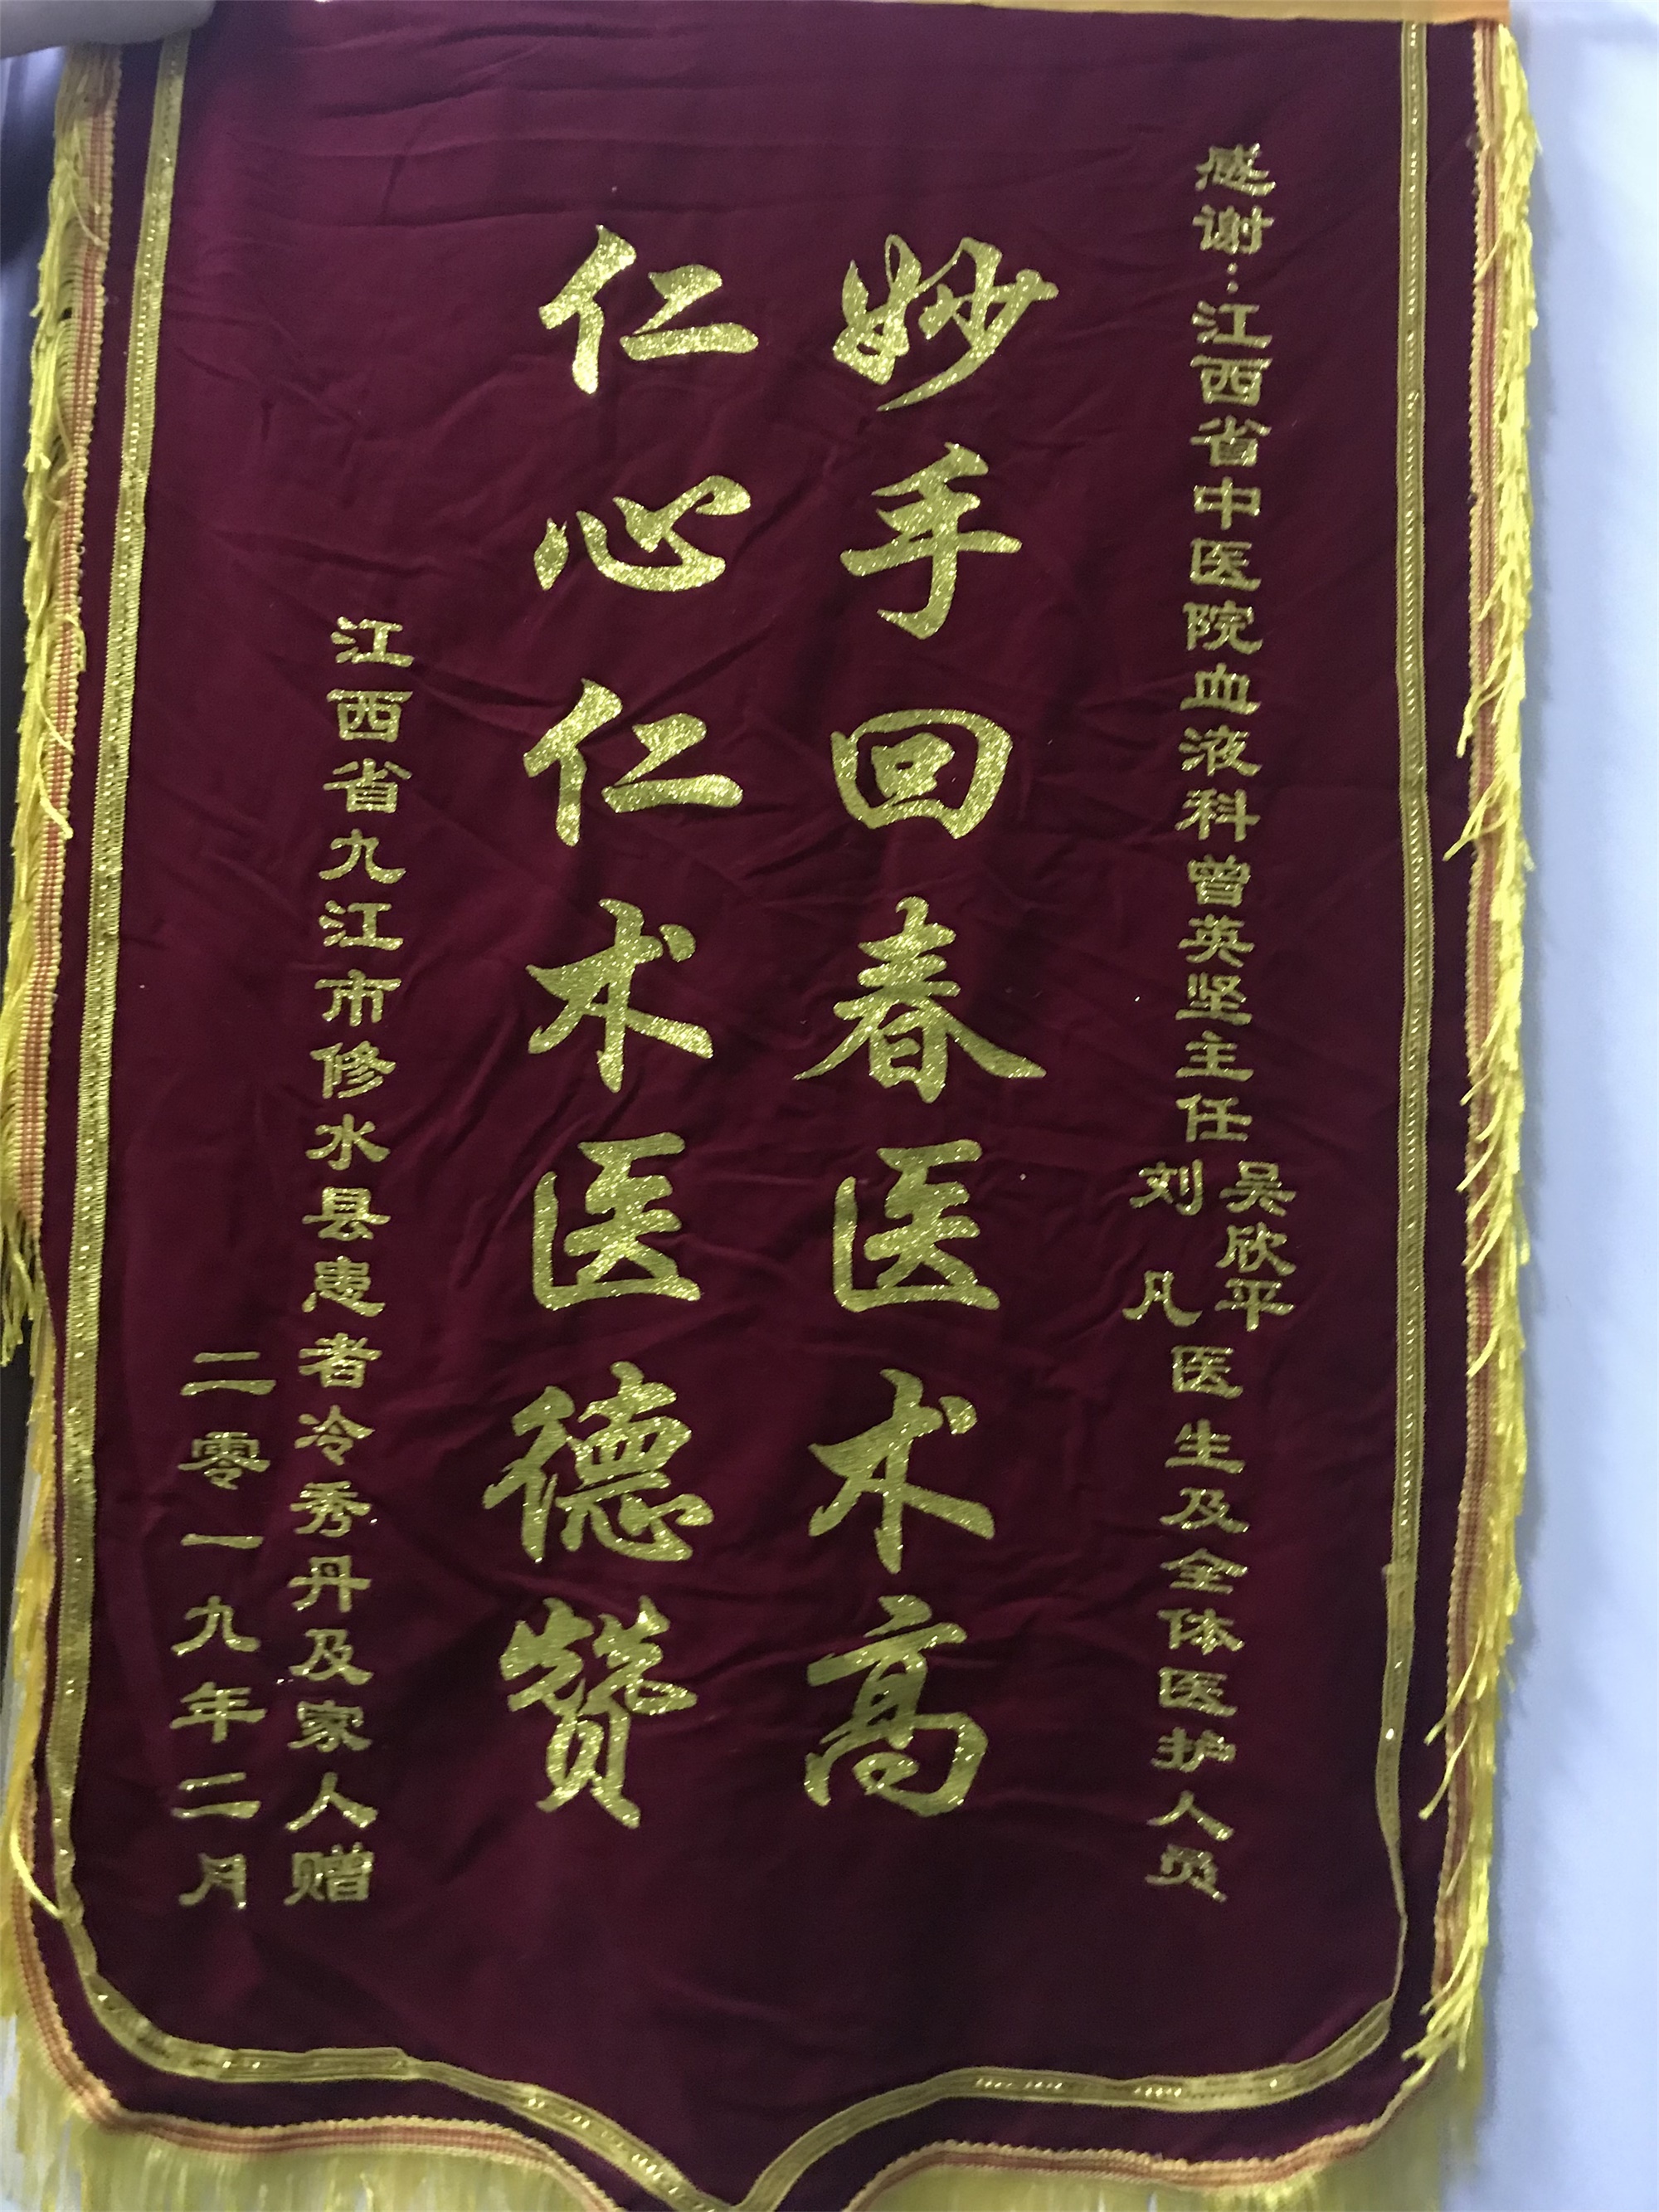 感谢:江西省中医院血液科曾英坚主任吴欣平
刘凡医生及全体医护人员
妙手回春医术高
仁心仁术医德赞
江西省九江市修水县患者冷秀丹及家人赠
二零一九年二月